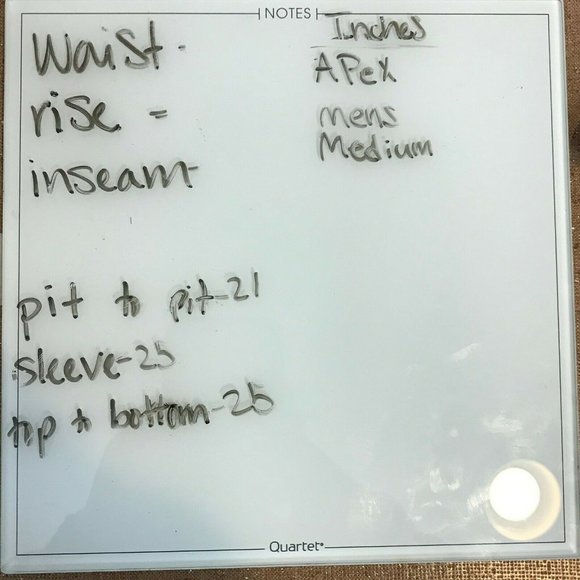 NOTES
Waist -
rise -
inseam-
pit to pit-21
sleeve-25
top to bottom-25
Inches
APEX
mens
Medium
Quartet